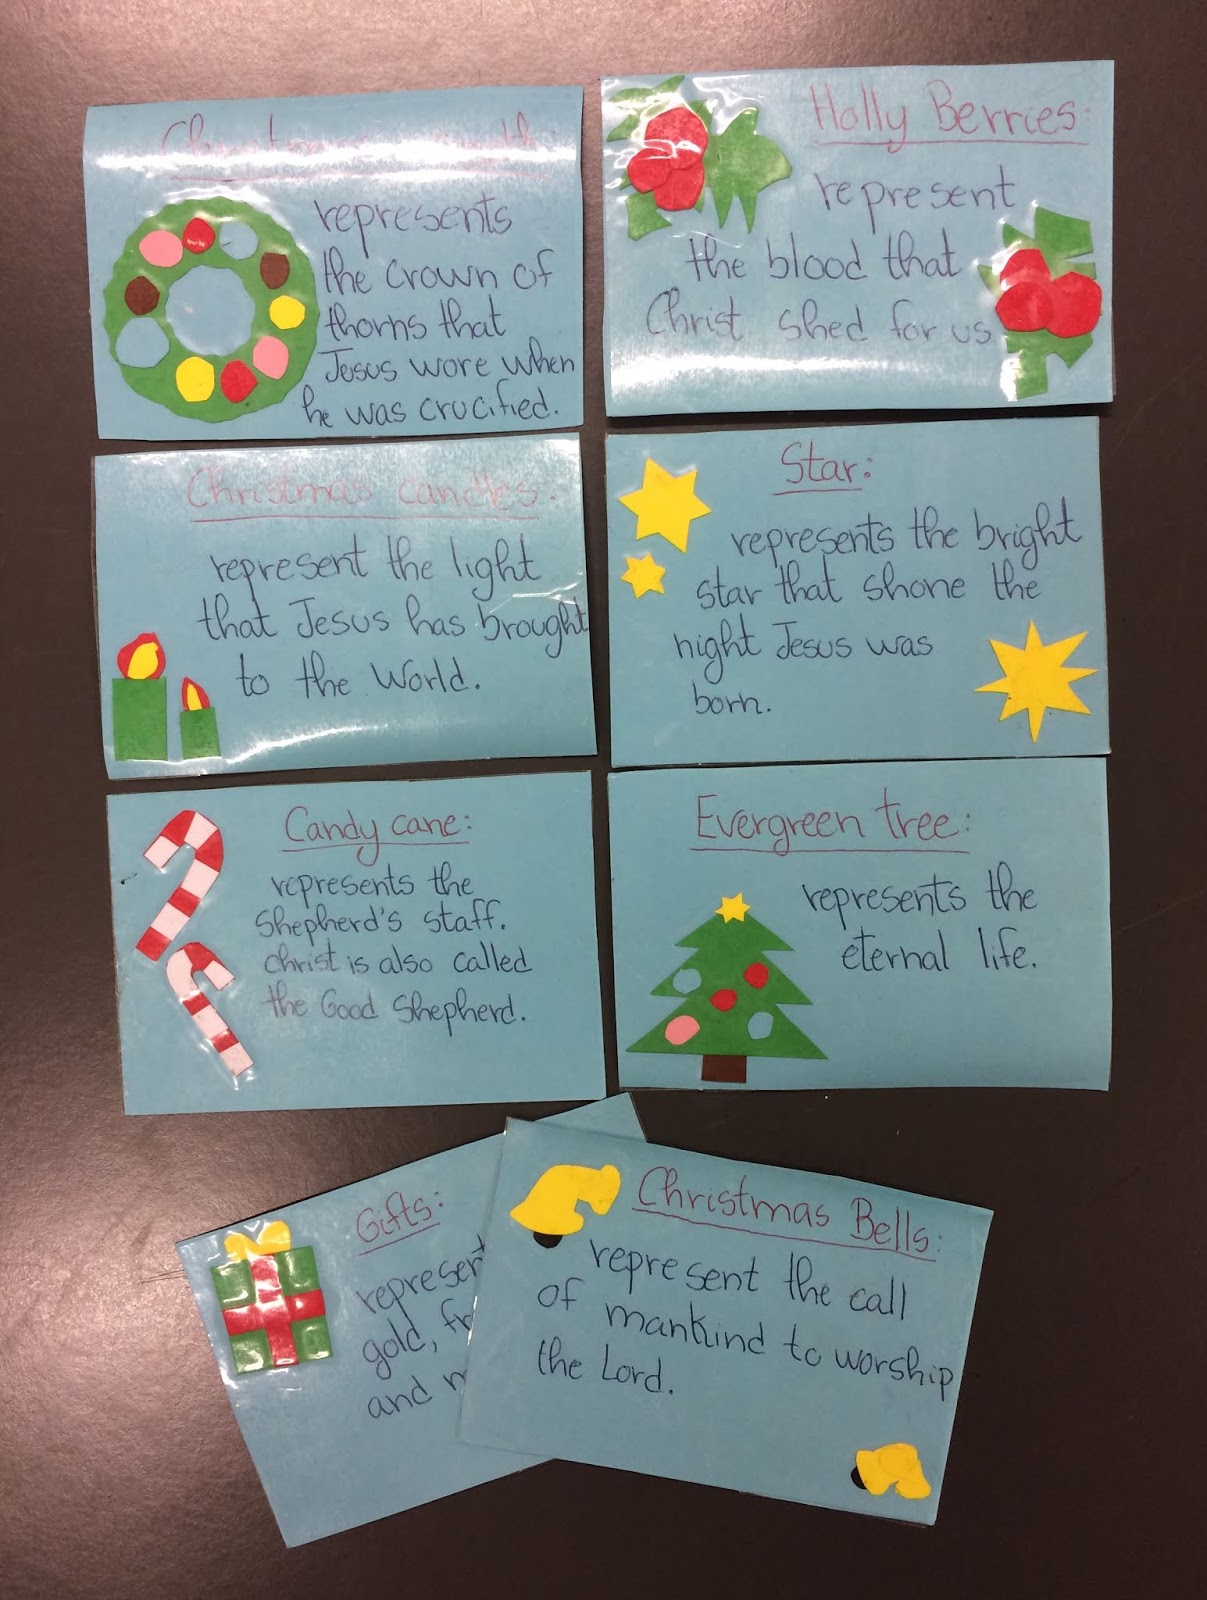 Christmas wreath:
represents
the crown of
thorns that
Jesus wore when
he was crucified.
Holly Berries:
represent
the blood that
Christ shed for us
Christmas candles:
represent the light
that Jesus has brought
to the World.
Star:
represents the bright
star that shone the
night Jesus was
born.
Candy cane:
represents the
Shepherd's staff.
Christ is also called
the Good Shepherd.
Evergreen tree:
represents the
eternal life.
Gifts:
represent
gold,
and
Christmas Bells:
represent the call
of mankind to worship
the Lord.